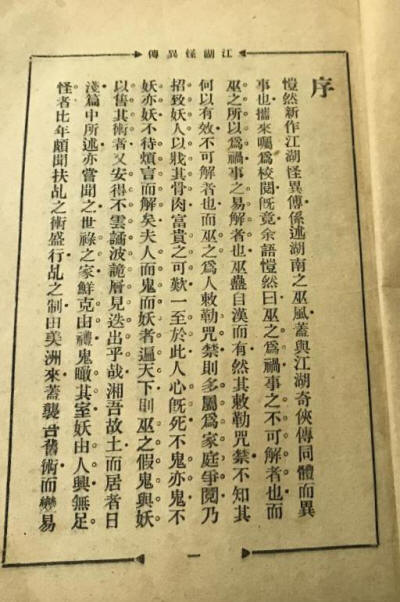 江湖怪異傳
序
愷然新作江湖怪異傳係述湖南之巫風蓋與江湖奇俠傳同體而異
事也攜來囑爲校閱既竟余語愷然曰巫之爲禍事之不可解者也而
巫之所以爲禍事之易解者也巫蠱自漢而有然其敕勒咒禁不知其
何以有效不可解者也而巫之爲人敕勒咒禁則多屬爲家庭爭閱乃
招致妖人以戕其骨肉富貴之可歎一至於此人心既死不鬼亦鬼不
妖亦妖不待煩言而解矣夫人而鬼而妖者遍天下則巫之假鬼與妖
以售其術者又安得不雲譎波詭層見迭出乎哉湘吾故土而居者日
淺篇中所述亦嘗聞之世祿之家鮮克由禮鬼瞰其室妖由人興無足
怪者比年頗聞扶乩之術盛行乩之制田美洲來蓋襲古舊術而變易
一